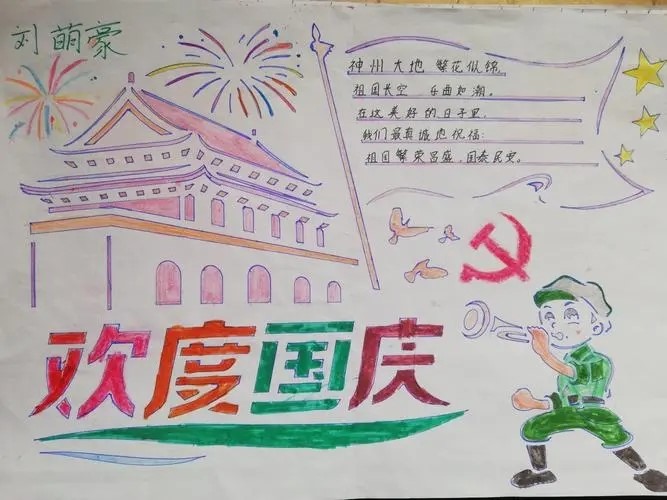 刘萌豪
神州大地 繁花似锦,
祖国长空 乐曲如潮。
在这美好的日子里,
我们最真诚地祝福:
祖国繁荣昌盛,国泰民安。
欢度国庆